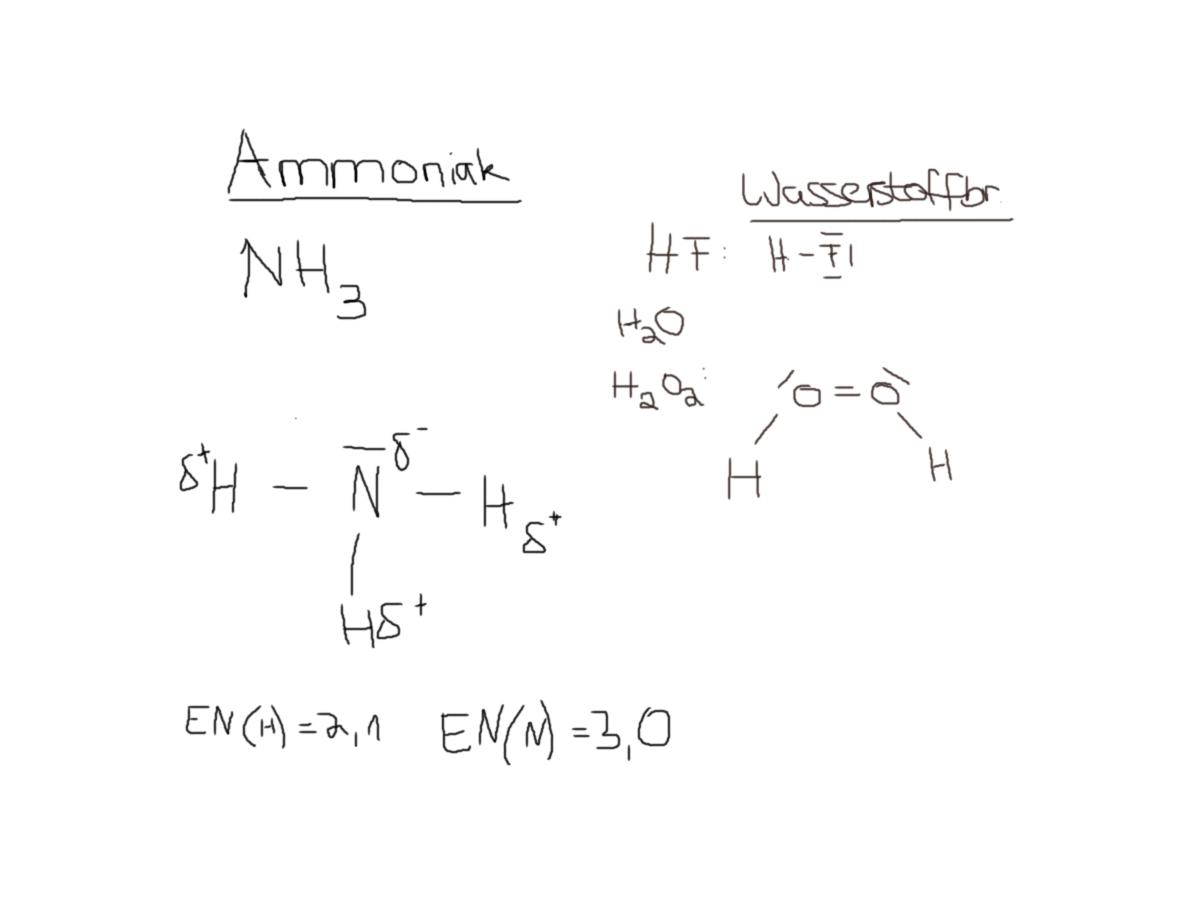 Ammoniak
NH₃
δ⁺H – N̅ δ⁻ – H δ⁺
|
Hδ⁺
EN(H) = 2,1 EN(N) = 3,0
Wasserstoffbr.
HF: H – F̲̅|
H₂O
H₂O₂: O = O
H H